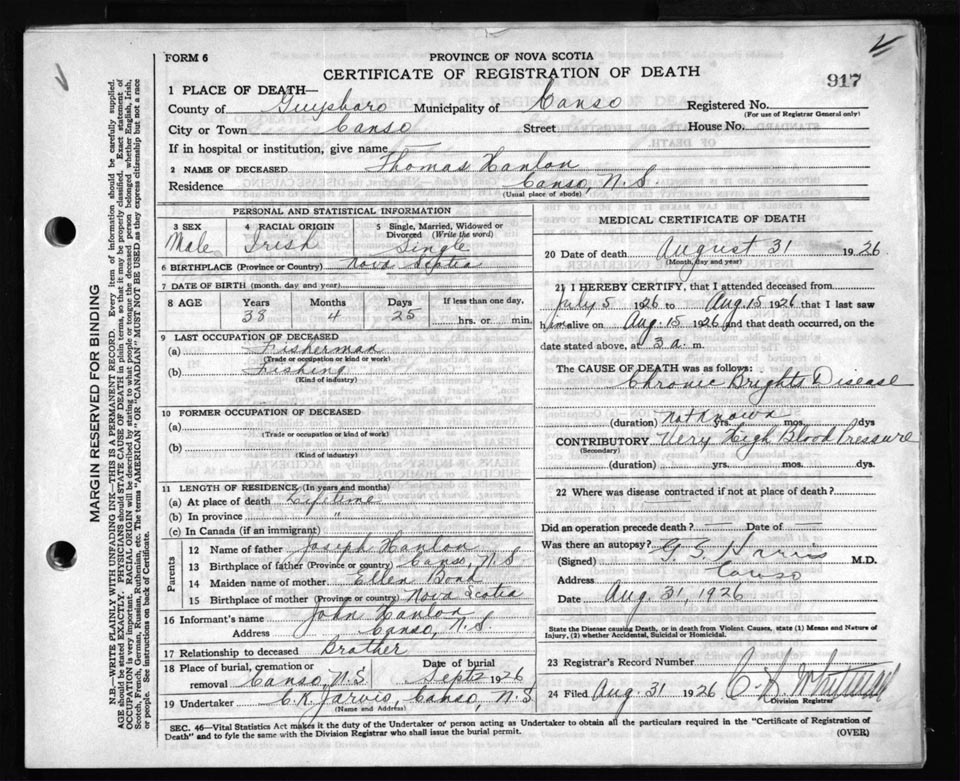 FORM 6
PROVINCE OF NOVA SCOTIA
CERTIFICATE OF REGISTRATION OF DEATH
917
1 PLACE OF DEATH—
County of Guysboro Municipality of Canso Registered No.
(For use of Registrar General only)
City or Town Canso Street House No.
If in hospital or institution, give name
2 NAME OF DECEASED Thomas Hanlon
Residence Canso, N.S.
(Usual place of abode)
PERSONAL AND STATISTICAL INFORMATION
3 SEX Male
4 RACIAL ORIGIN Irish
5 Single, Married, Widowed or Divorced (Write the word) Single
6 BIRTHPLACE (Province or Country) Nova Scotia
7 DATE OF BIRTH (month, day, and year)
8 AGE Years Months Days If less than one day,
38 4 25 hrs. or min.
9 LAST OCCUPATION OF DECEASED
(a) Fisherman
(Trade or occupation or kind of work)
(b) Fishing
(Kind of industry)
10 FORMER OCCUPATION OF DECEASED
(a)
(Trade or occupation or kind of work)
(b)
(Kind of industry)
11 LENGTH OF RESIDENCE (In years and months)
(a) At place of death Lifetime
(b) In province "
(c) In Canada (if an immigrant)
Parents
12 Name of father Joseph Hanlon
13 Birthplace of father (Province or country) Canso, N.S
14 Maiden name of mother Ellen Bond
15 Birthplace of mother (Province or country) Nova Scotia
16 Informant's name John Hanlon
Address Canso, N.S.
17 Relationship to deceased Brother
18 Place of burial, cremation or removal Canso, N.S Date of burial Sept 2 1926
19 Undertaker C.K. Jarvis, Canso, N.S
(Name and Address)
MEDICAL CERTIFICATE OF DEATH
20 Date of death August 31 1926
(Month, day and year)
21 I HEREBY CERTIFY, that I attended deceased from
July 5 1926 to Aug. 15 1926 that I last saw
him alive on Aug. 15 1926 and that death occurred, on the
date stated above, at 3 a. m.
The CAUSE OF DEATH was as follows:
Chronic Brights Disease
(duration) not known yrs. mos. dys
CONTRIBUTORY Very High Blood Pressure
(Secondary)
(duration) yrs. mos. dys.
22 Where was disease contracted if not at place of death?
Did an operation precede death? — Date of —
Was there an autopsy?
(Signed) Harris M.D.
Address Canso
Date Aug. 31, 1926
State the Disease causing Death, or in death from Violent Causes, state (1) Means and Nature of
Injury, (2) whether Accidental, Suicidal or Homicidal.
23 Registrar's Record Number
24 Filed Aug. 31 1926
Division Registrar
SEC. 46—Vital Statistics Act makes it the duty of the Undertaker or person acting as Undertaker to obtain all the particulars required in the "Certificate of Registration of
Death" and to fyle the same with the Division Registrar who shall issue the burial permit.
(OVER)
MARGIN RESERVED FOR BINDING
N.B.—WRITE PLAINLY WITH UNFADING INK—THIS IS A PERMANENT RECORD. Every item of information should be carefully supplied.
AGE should be stated EXACTLY. PHYSICIANS should STATE CAUSE OF DEATH in plain terms, so that it may be properly classified. Exact statement of
OCCUPATION is very important. RACIAL ORIGIN will be described by stating to what people or tongue the deceased person belonged whether English, Irish,
Scotch, French, German, Russian, Ruthenian, etc. The terms "AMERICAN" OR "CANADIAN" MUST NOT BE USED as they express citizenship but not a race
or people. See instructions on back of Certificate.